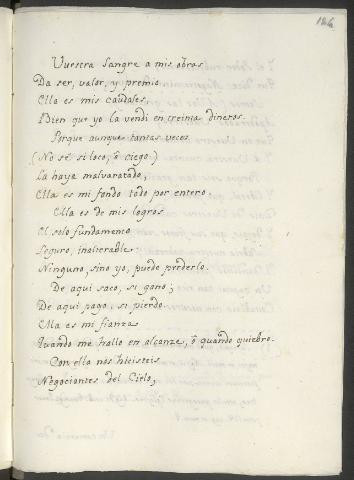 126
Vuestra Sangre a mis obras
Da ser, valor, y premio
Ella es mis caudales,
Bien que yo la vendi en treinta dineros.
Porque aunque tantas veces
(No sé si loco, ô ciego)
La haya malvaratado,
Ella es mi fondo todo por entero.
Ella es de mis logros
El solo fundamento
Seguro, inalterable
Ninguno, sino yo, puede perderlo.
De aqui saco, si gano;
De aqui pago, si pierdo
Ella es mi fianza
Quando me hallo en alcanze, ô quando quiebro.
Con ella nos hicisteis
Negociantes del Cielo,